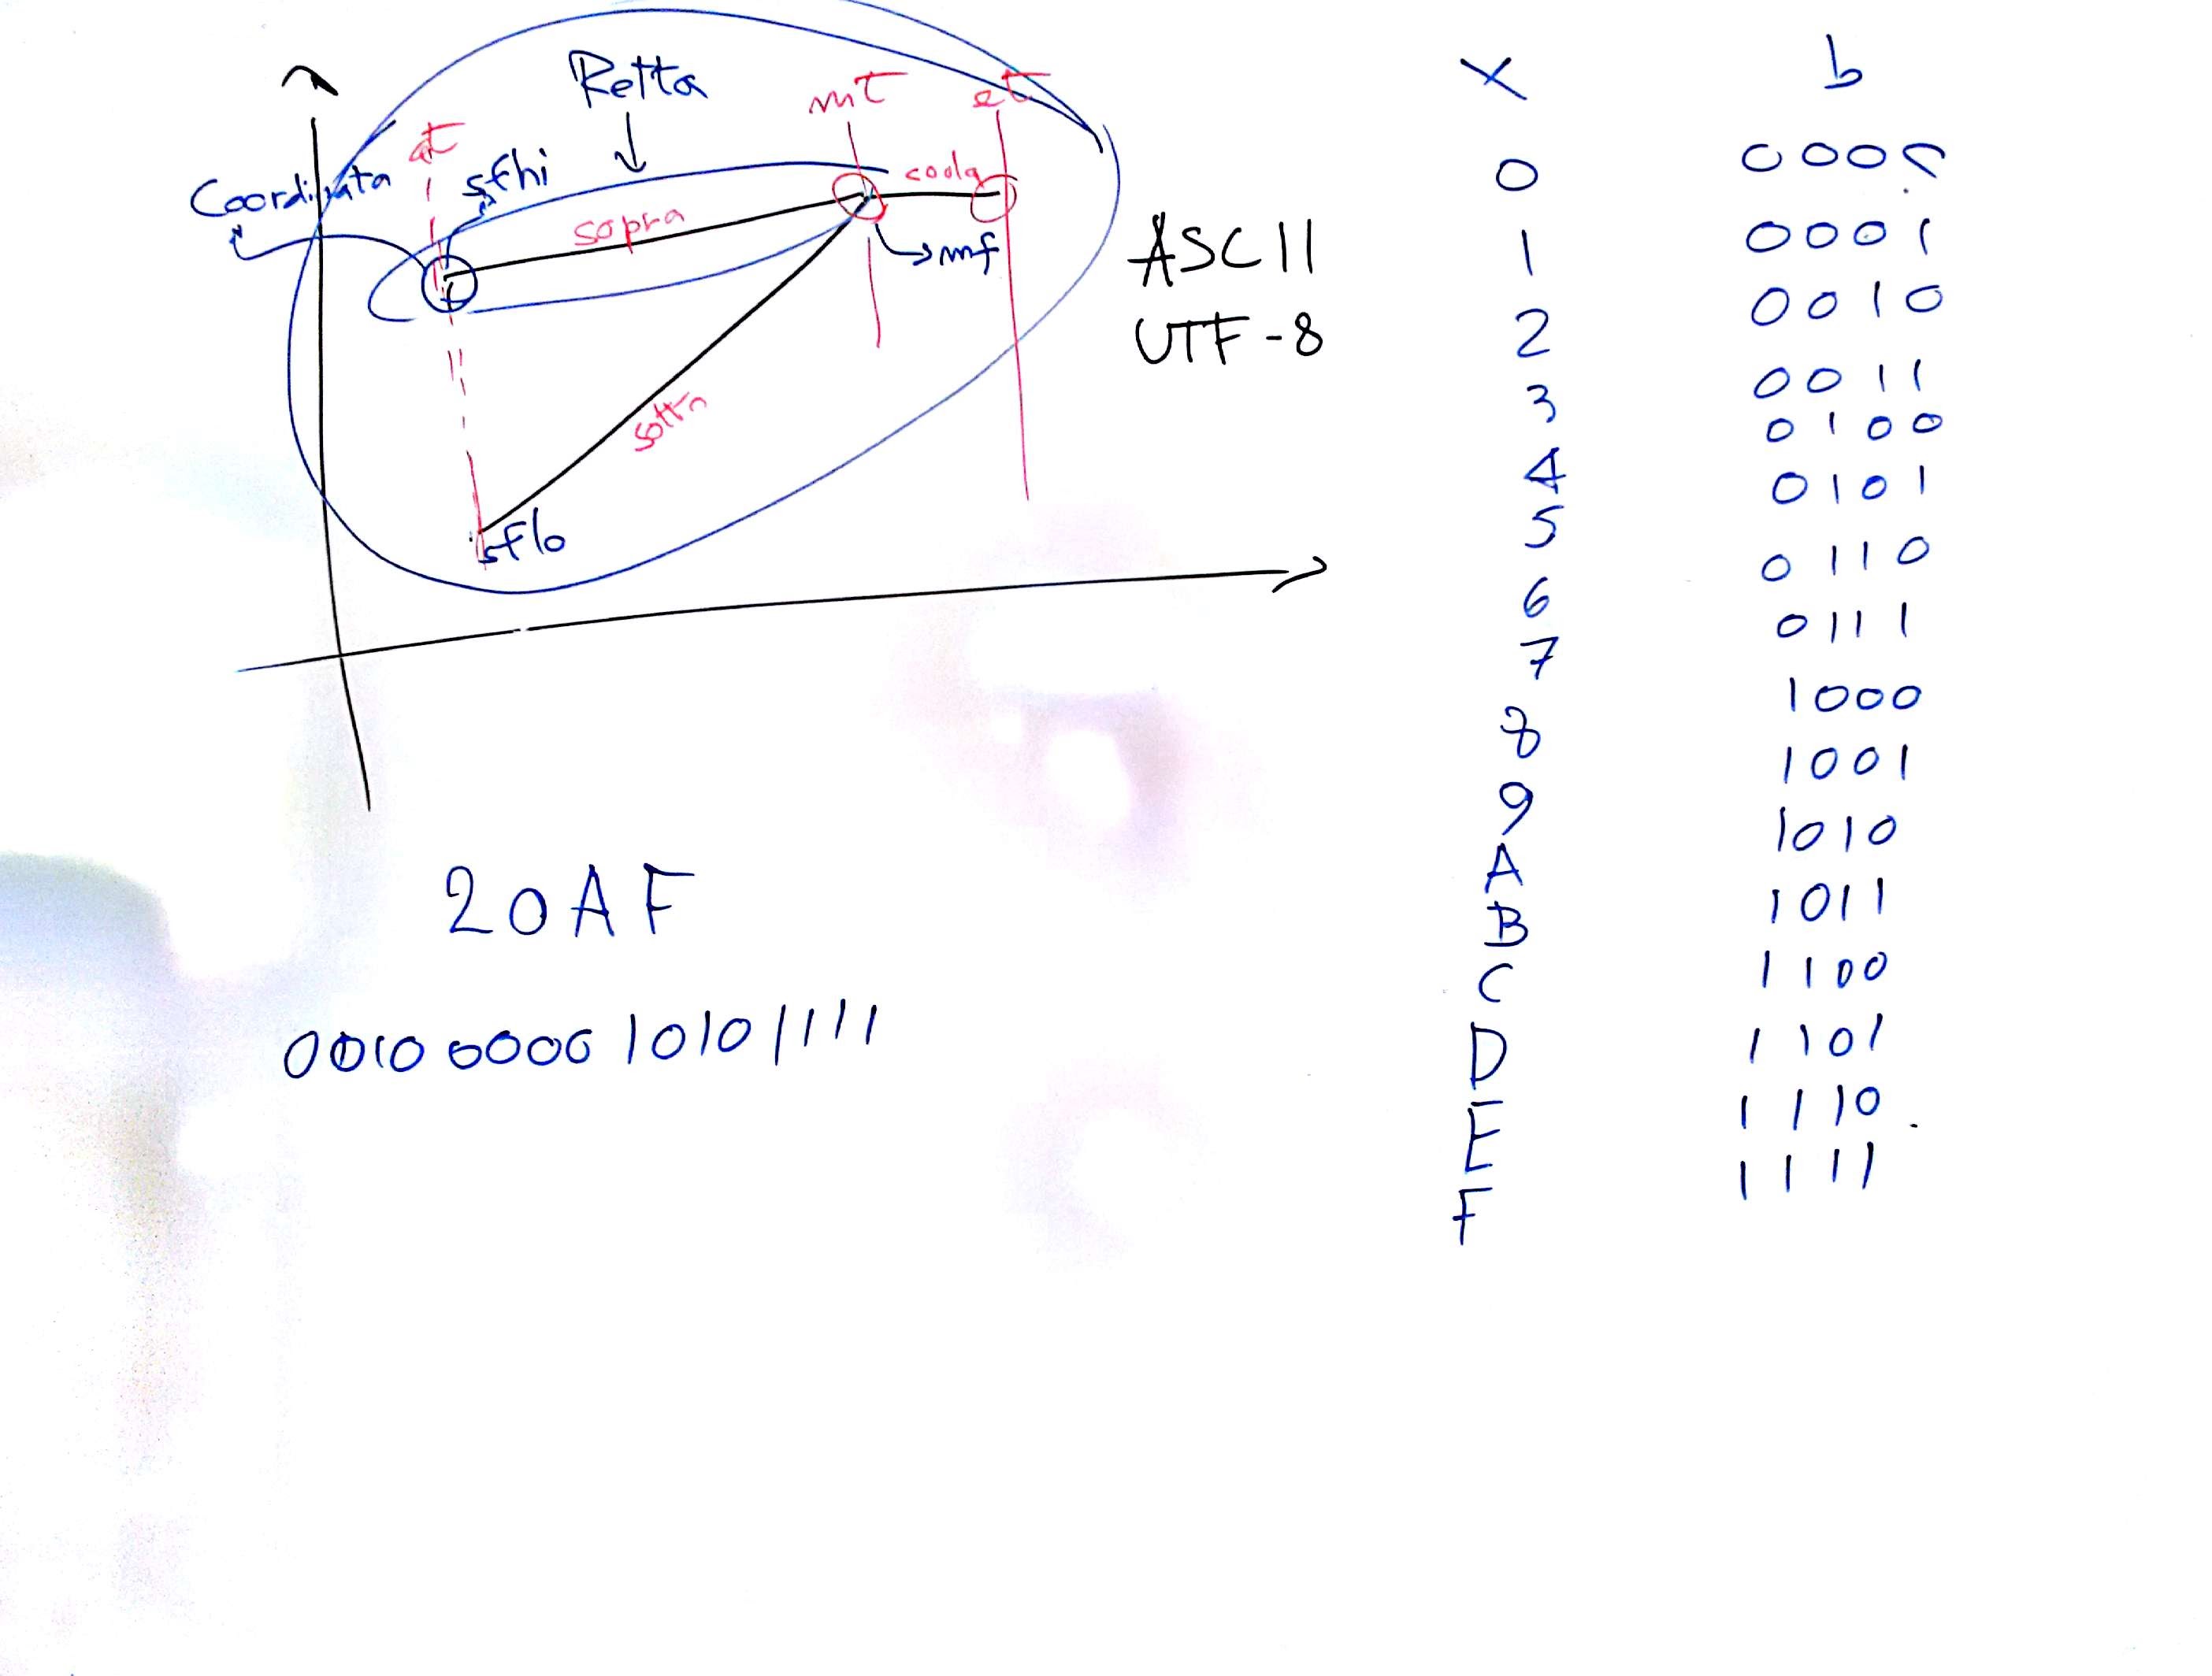 Retta
mτ
eτ
aτ
sfhi
Coordinata
coda
sopra
mf
sotto
sflo
ASCII
UTF-8
20AF
0010 0000 1010 1111
x b
0 0000
1 0001
2 0010
3 0011
4 0100
5 0101
6 0110
7 0111
8 1000
9 1001
A 1010
B 1011
C 1100
D 1101
E 1110
F 1111